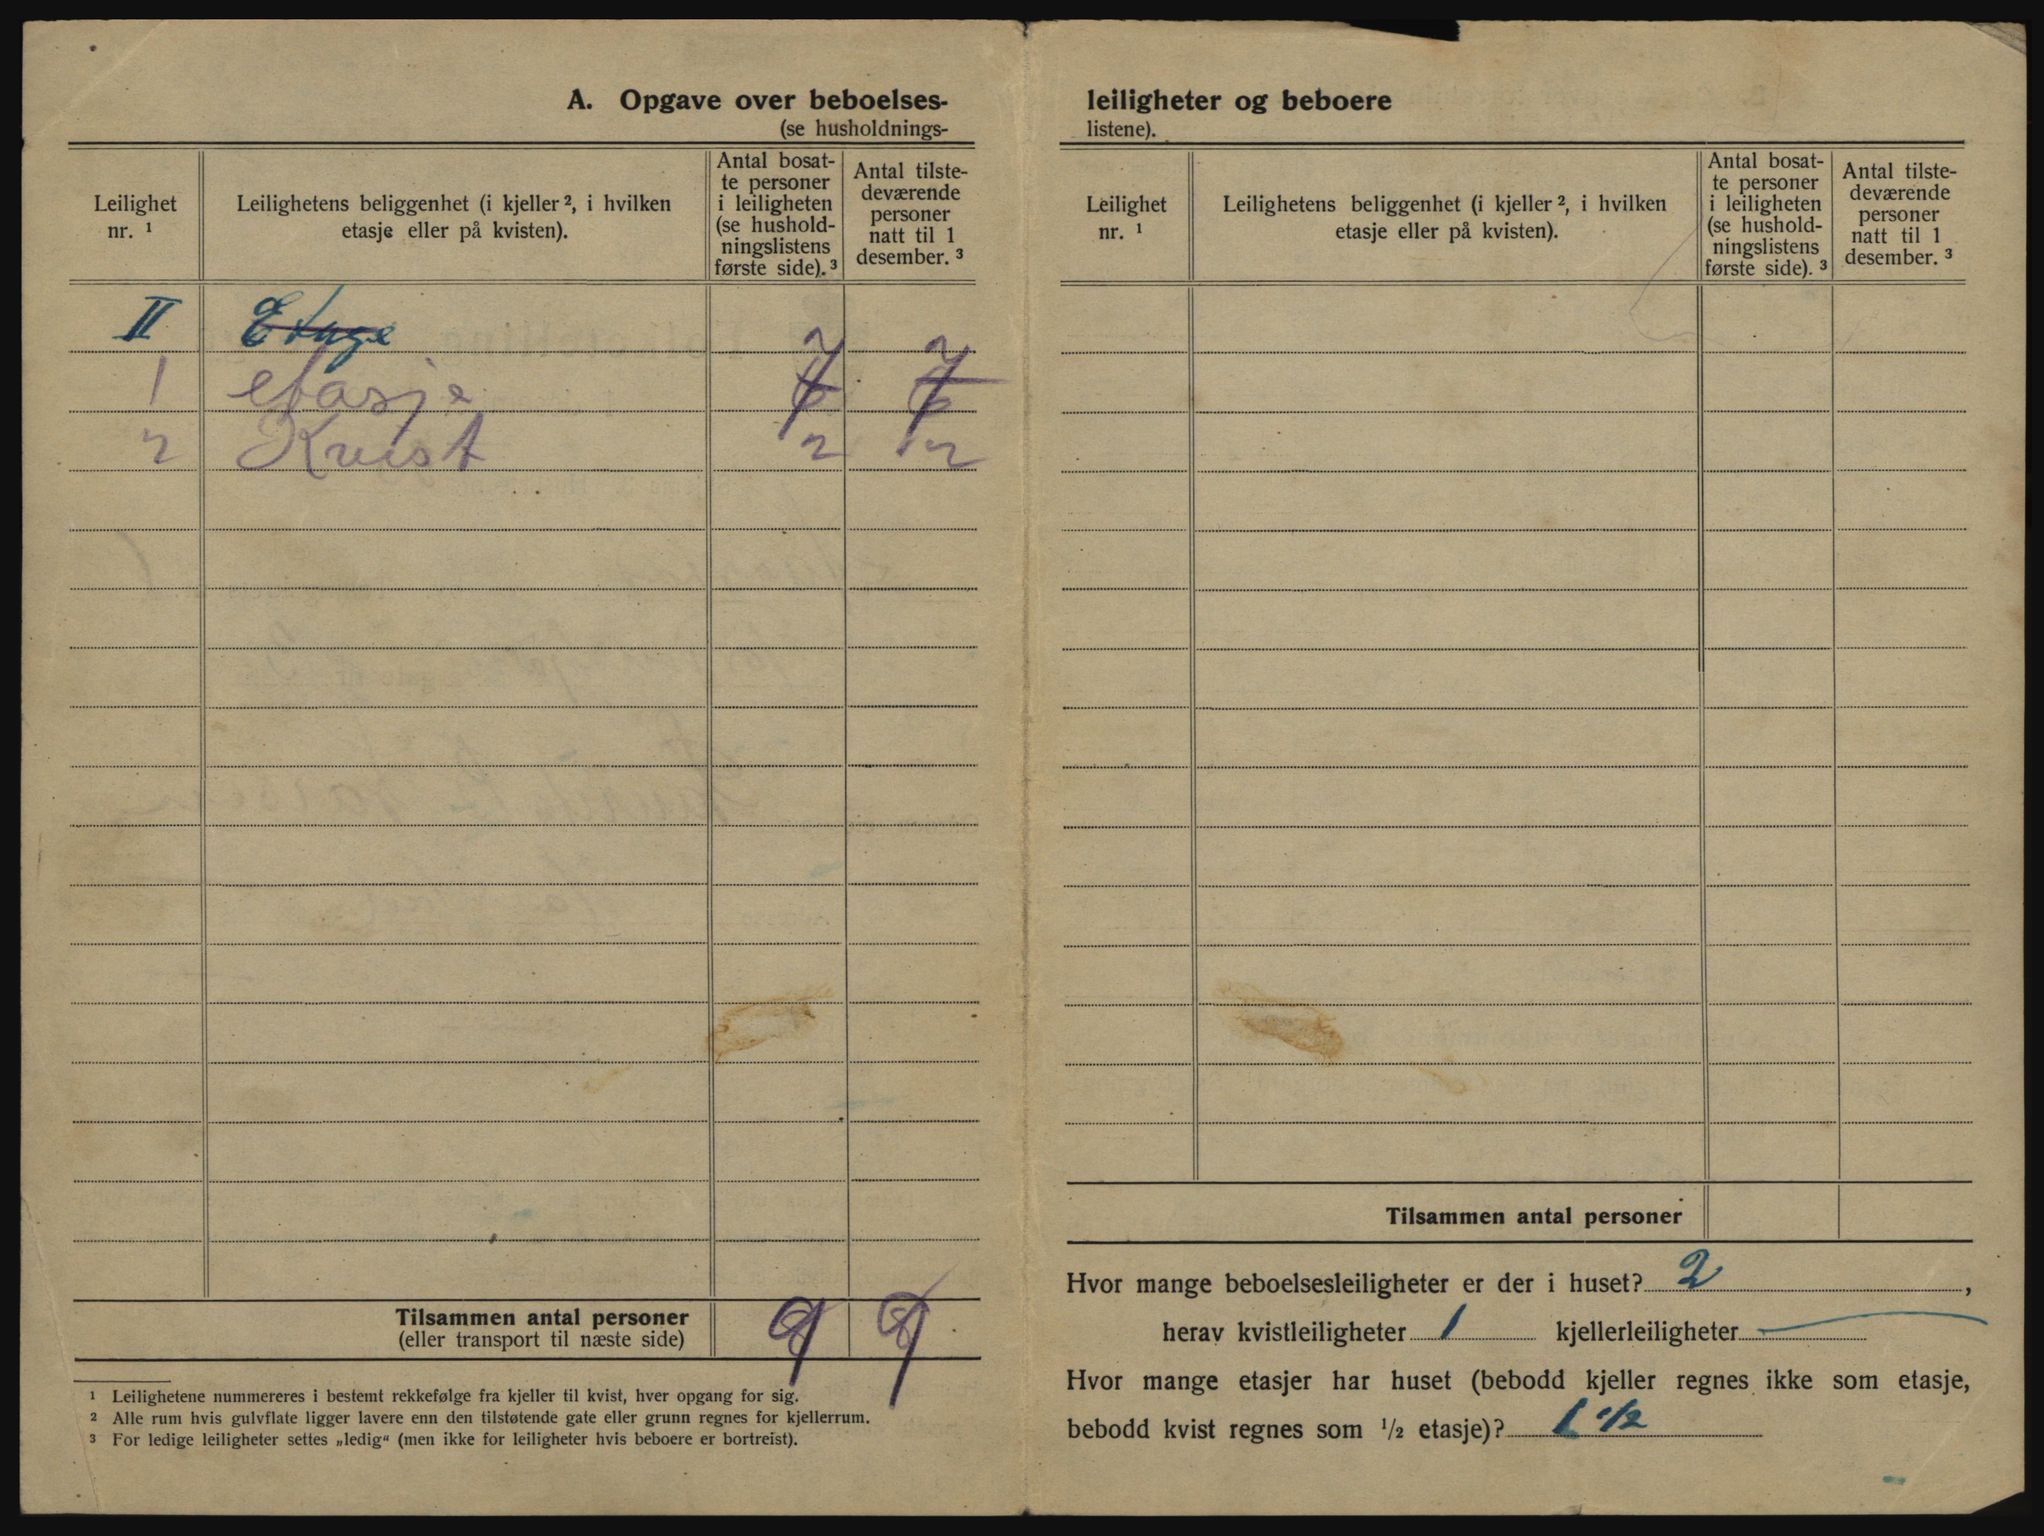 A. Opgave over beboelses-
(se husholdnings-
Leilighet
nr. ¹
Leilighetens beliggenhet (i kjeller ², i hvilken
etasje eller på kvisten).
Antal bosat-
te personer
i leiligheten
(se hushold-
ningslistens
første side). ³
Antal tilste-
deværende
personer
natt til 1
desember. ³
II Etage
1 etasje 7 7
2 Kvist 2 2
Tilsammen antal personer 9 9
(eller transport til næste side)
¹ Leilighetene nummereres i bestemt rekkefølge fra kjeller til kvist, hver opgang for sig.
² Alle rum hvis gulvflate ligger lavere enn den tilstøtende gate eller grunn regnes for kjellerrum.
³ For ledige leiligheter settes „ledig“ (men ikke for leiligheter hvis beboere er bortreist).
leiligheter og beboere
listene).
Leilighet
nr. ¹
Leilighetens beliggenhet (i kjeller ², i hvilken
etasje eller på kvisten).
Antal bosat-
te personer
i leiligheten
(se hushold-
ningslistens
første side). ³
Antal tilste-
deværende
personer
natt til 1
desember. ³
Tilsammen antal personer
Hvor mange beboelsesleiligheter er der i huset? 2,
herav kvistleiligheter 1 kjellerleiligheter —
Hvor mange etasjer har huset (bebodd kjeller regnes ikke som etasje,
bebodd kvist regnes som ½ etasje)? 1 ½